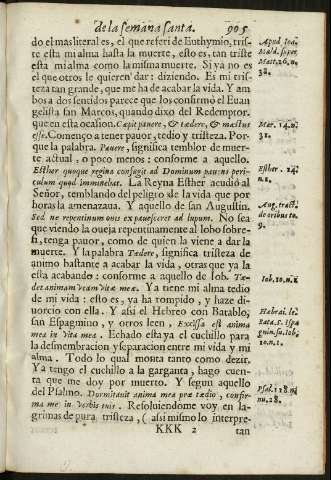 de la semana santa. 905
do el mas literal es, el que referi de Euthymio, tris-
te està mi alma hasta la muerte, esto es, tan triste
esta mi alma como la misma muerte. Si ya no es
el que otros le quieren dar: diziendo. Es mi tris-
teza tan grande, que me ha de acabar la vida. Y am
bos a dos sentidos parece que los confirmò el Euan
gelista san Marcos, quando dixo del Redemptor.
que en esta ocasion. Cæpit pauere, & tædere, & mæstus
esse. Començo a tener pauor, tedio y tristeza. Por-
que la palabra. Pauere, significa temblor de muer-
te actual, o poco menos: conforme a aquello.
Esther quoque regina confugit ad Dominum pauens peri-
culum quod imminebat. La Reyna Esther acudiò al
Señor, temblando del peligro de la vida que por
horas la amenazaua. Y aquello de san Augustin.
Sed ne repentinum ouis expauesceret ad lupum. No sea
que viendo la oueja repentinamente al lobo sobre-
si, tenga pauor, como de quien la viene a dar la
muerte. Y la palabra Tædere, significa tristeza de
animo bastante a acabar la vida, o tras que ya la
esta acabando: conforme a aquello de Iob. Tæ-
det animam meam vitæ meæ. Ya tiene mi alma tedio
de mi vida: esto es, ya ha rompido, y haze di-
uorcio con ella. Y assi el Hebreo con Batablo,
san Espagmino, y otros leen, Excissa est anima
mea in vita mea. Echado esta ya el cuchillo para
la desmembracion y separacion entre mi vida y mi
alma. Todo lo qual monta tanto como dezir.
Ya tengo el cuchillo a la garganta, hago cuen-
ta que me doy por muerto. Y segun aquello
del Psalmo. Dormitauit anima mea præ tædio, confir-
ma me in verbis tuis. Resoluiendome voy en la-
grimas de pura tristeza, ( assi mismo lo interpre-
KKK 2 tan
Apud Ioā.
Mald. super
Mat. 26. n.
38.
Mar. 14. n.
32.
Esther. 14.
n. 1.
Aug. tract.
de ouibus to.
9.
Iob. 10. n. 1
Hebrai. le.
Bata. S. Ispa
gmin. su. Iob.
10. n. 1.
Psal. 118. n.
nu. 28.